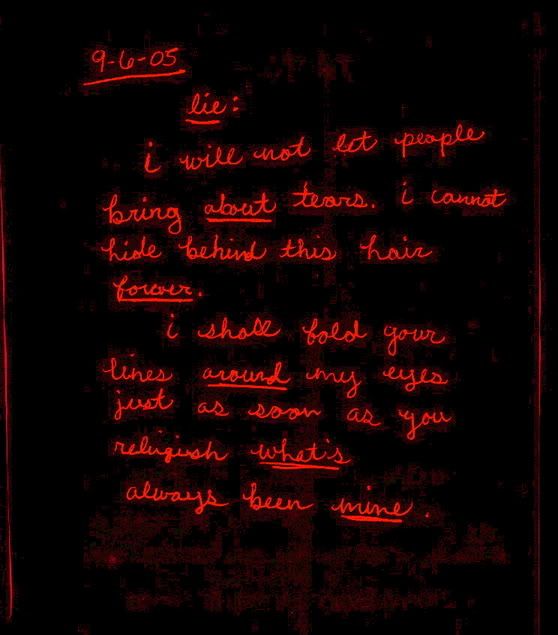 9-6-05
lie:
i will not let people
bring about tears. i cannot
hide behind this hair
forever.
i shall fold your
lines around my eyes
just as soon as you
relinquish what's
always been mine.